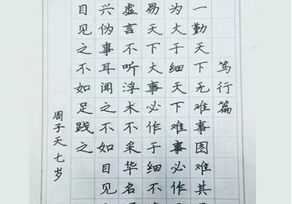 笃行篇
一勤天下无难事图难其
为大于细天下难事必作
易天下大事必作于细不
虚言不听浮术不采华名
兴伪事耳闻之不如目见
目见之不如足践之
周子天七岁